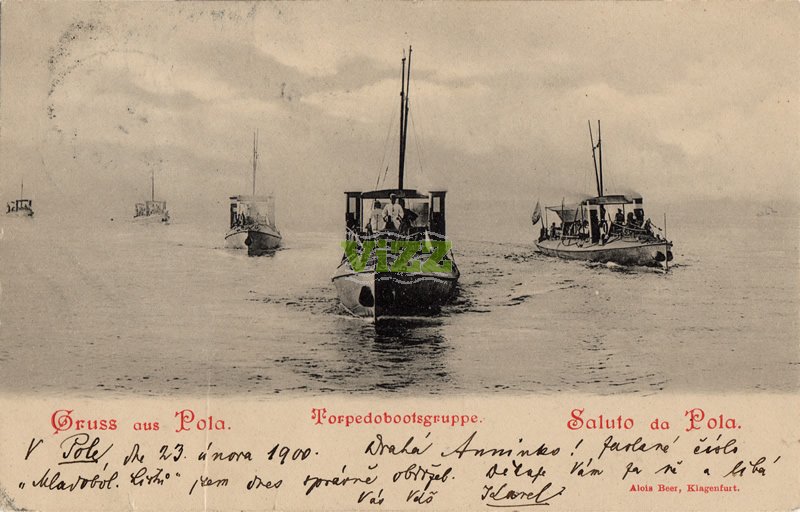 VIZZ
Gruss aus Pola. Torpedobootsgruppe. Saluto da Pola.
V Pole, dne 23. února 1900. Drahá Anninko! Zaslané číslo
„Mladobol. Listů" jsem dnes správně obdržel. Děkuje Vám za ně a líbá
Vás Váš Karel
Alois Beer, Klagenfurt.